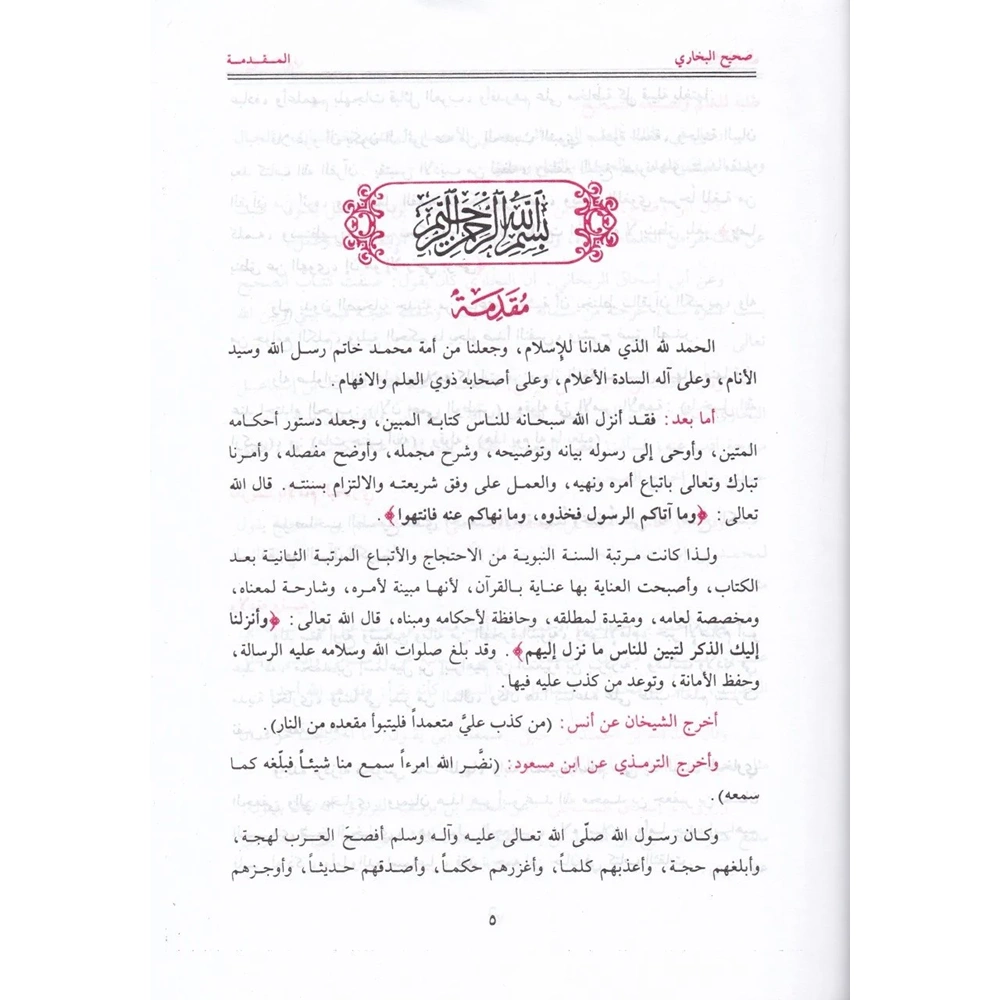 صحيح البخاري
المـقـدمـة
بسم الله الرحمن الرحيم
مُقَدِّمَةٌ
الحمد لله الذي هدانا للإسلام، وجعلنا من أمة محمد خاتم رسل الله وسيد
الأنام، وعلى آله السادة الأعلام، وعلى أصحابه ذوي العلم والافهام.
أما بعد: فقد أنزل الله سبحانه للناس كتابه المبين، وجعله دستور أحكامه
المتين، وأوحى إلى رسوله بيانه وتوضيحه، وشرح مجمله، وأوضح مفصله، وأمرنا
تبارك وتعالى باتباع أمره ونهيه، والعمل على وفق شريعته والالتزام بسنته. قال الله
تعالى: ﴿وما آتاكم الرسول فخذوه، وما نهاكم عنه فانتهوا﴾.
ولذا كانت مرتبة السنة النبوية من الاحتجاج والأتباع المرتبة الثانية بعد
الكتاب، وأصبحت العناية بها عناية بالقرآن، لأنها مبينة لأمره، وشارحة لمعناه،
ومخصصة لعامه، ومقيدة لمطلقه، وحافظة لأحكامه ومبناه، قال الله تعالى: ﴿وأنزلنا
إليك الذكر لتبين للناس ما نزل إليهم﴾. وقد بلغ صلوات الله وسلامه عليه الرسالة،
وحفظ الأمانة، وتوعد من كذب عليه فيها.
أخرج الشيخان عن أنس: (من كذب عليَّ متعمداً فليتبوأ مقعده من النار).
وأخرج الترمذي عن ابن مسعود: (نضَّر الله امرءاً سمع منا شيئاً فبلّغه كما
سمعه).
وكان رسول الله صلّى الله تعالى عليه وآله وسلم أفصحَ العرب لهجة،
وأبلغهم حجة، وأعذبهم كلماً، وأغزرهم حكماً، وأصدقهم حديثاً، وأوجزهم
٥